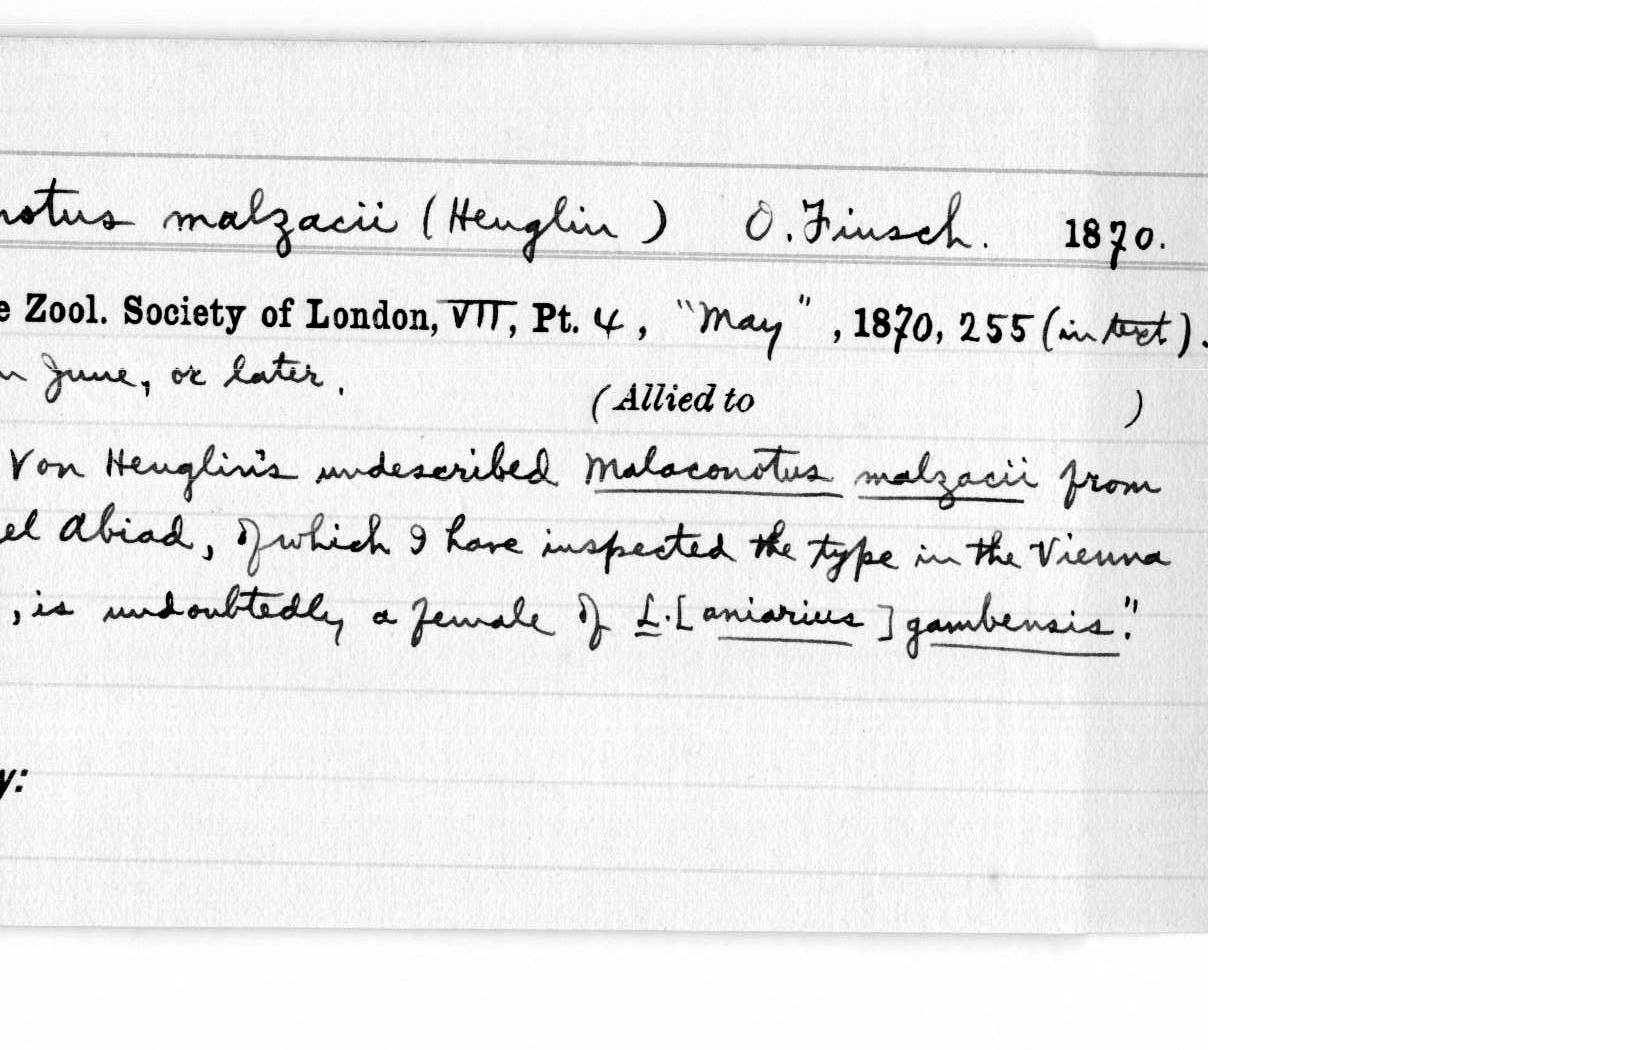 notus malzacii (Heuglin) O. Finsch. 1870.
e Zool. Society of London, VII, Pt. 4, "May", 1870, 255 (in text).
n June, or later.
(Allied to )
Von Heuglin's undescribed Malaconotus malzacii from
el Abiad, of which I have inspected the type in the Vienna
, is undoubtedly a female of L.[aniarius] gambensis."
y: